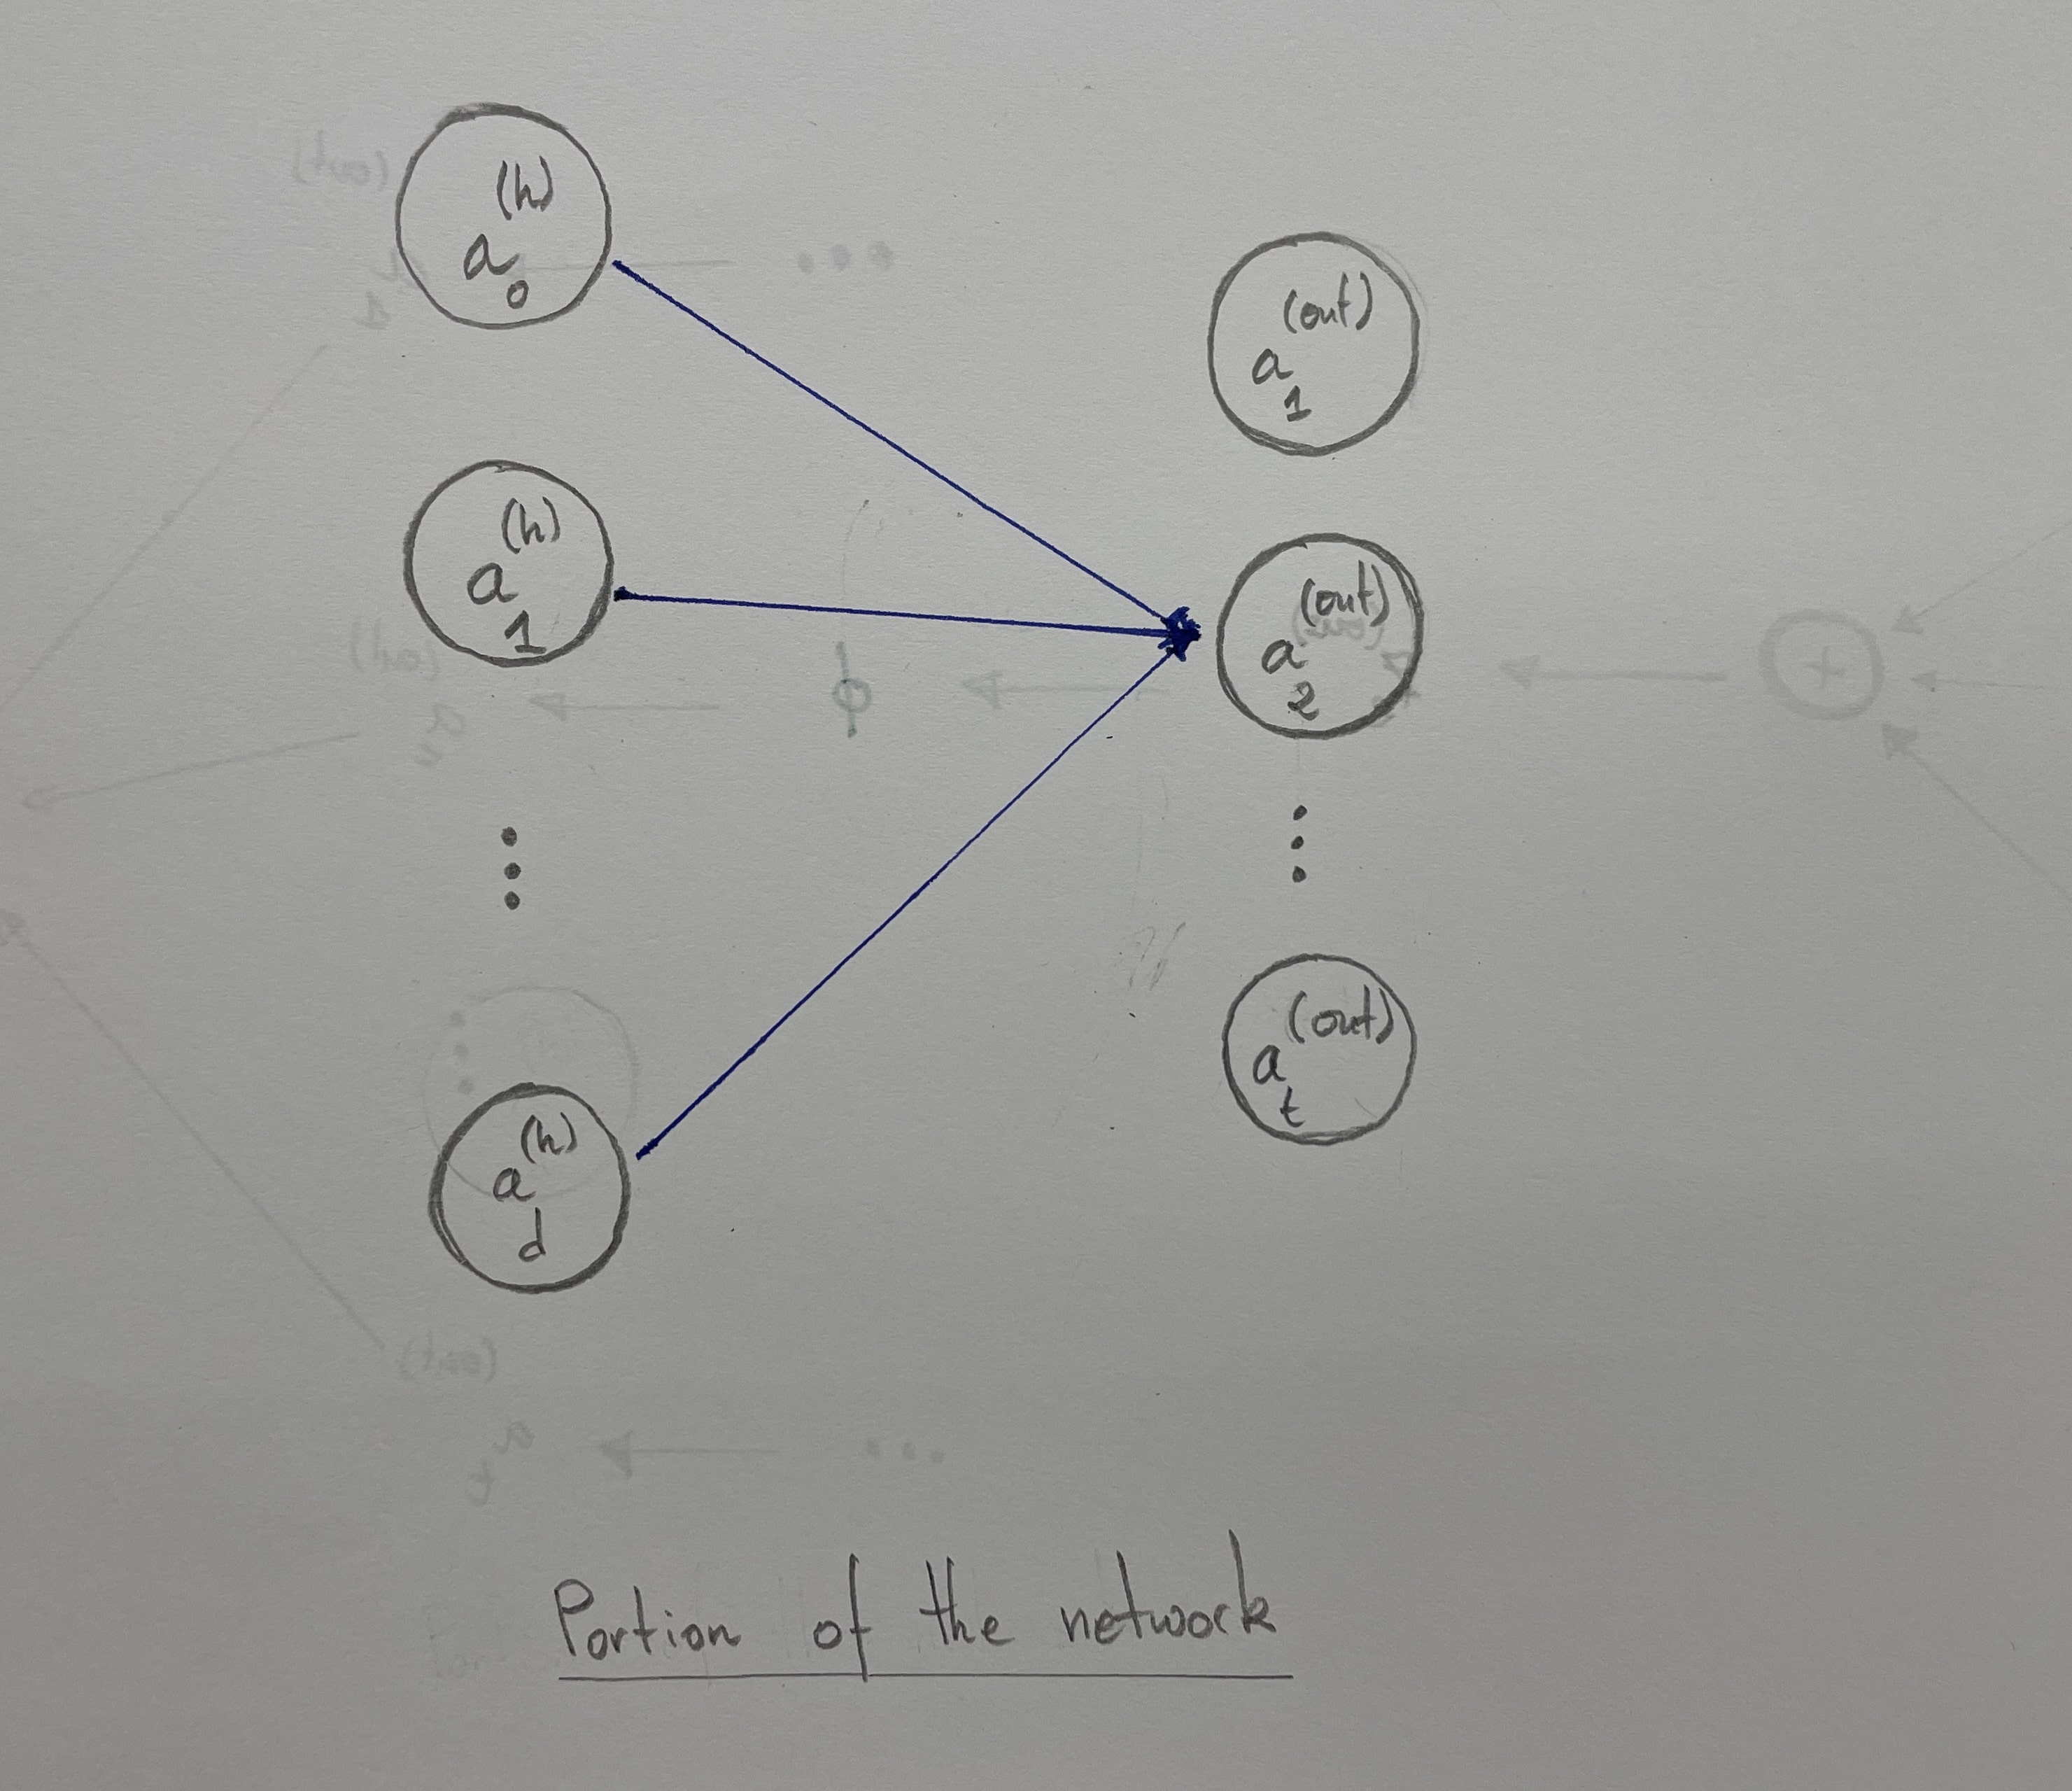 a₀⁽ʰ⁾
a₁⁽ʰ⁾
a_d⁽ʰ⁾
a₁⁽ᵒᵘᵗ⁾
a₂⁽ᵒᵘᵗ⁾
aₜ⁽ᵒᵘᵗ⁾
Portion of the network